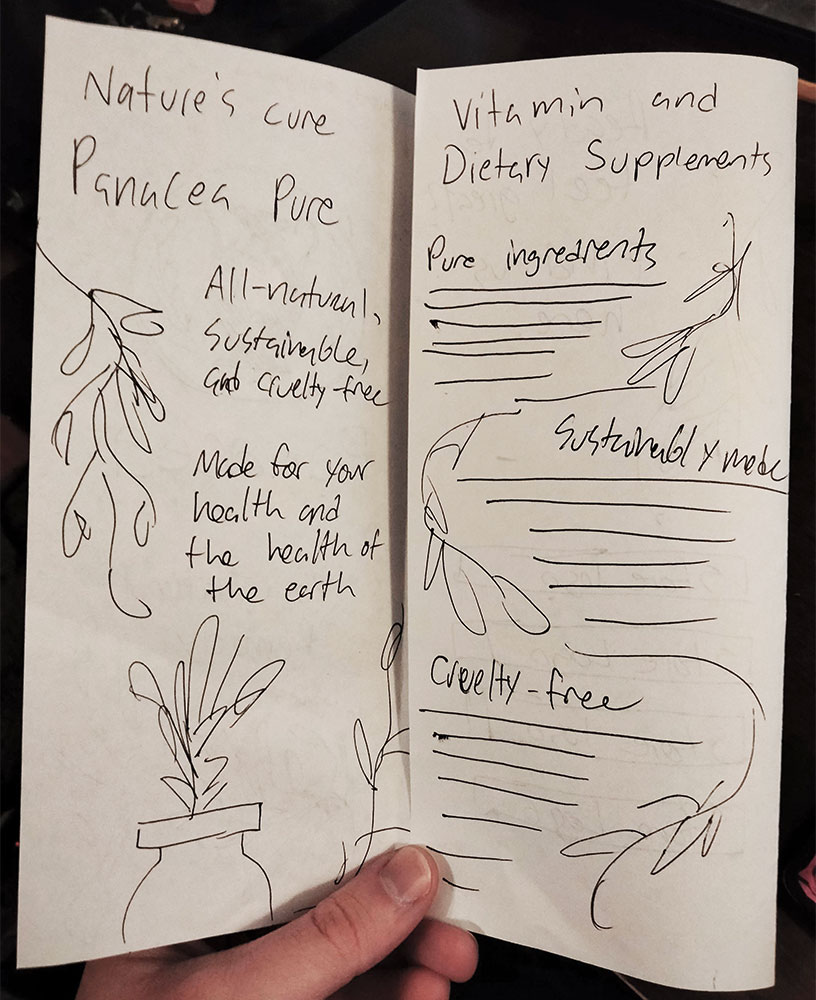 Nature's cure
Panacea Pure
All-natural,
Sustainable,
and cruelty-free
Made for your
health and
the health of
the earth
Vitamin and
Dietary Supplements
Pure ingredients
Sustainably made
Cruelty-free